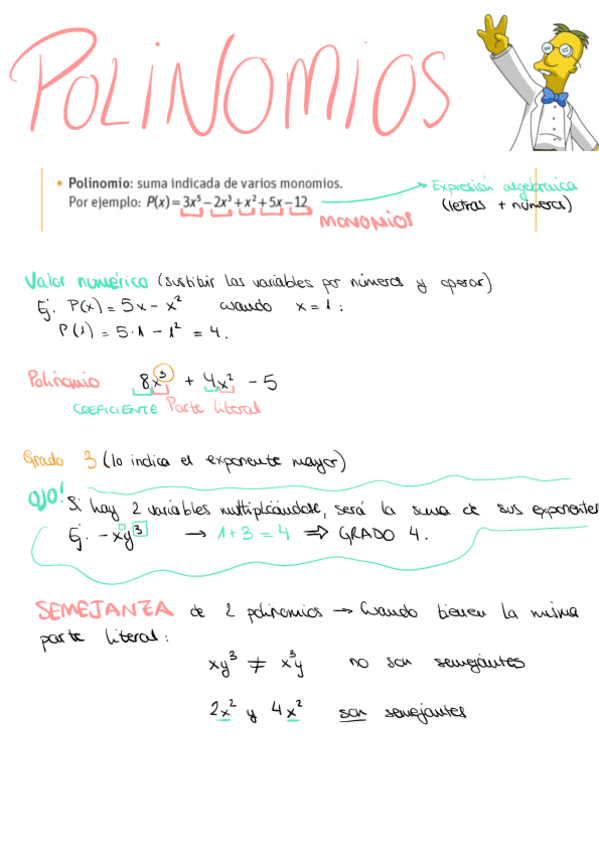 POLINOMIOS
• Polinomio: suma indicada de varios monomios.
Por ejemplo: P(x) = 3x⁵ – 2x³ + x² + 5x – 12
MONOMIOS
Expresión algebraica
(letras + números)
Valor numérico (sustituir las variables por números y operar)
Ej. P(x) = 5x - x² cuando x = 1:
P(1) = 5·1 - 1² = 4.
Polinomio 8x³ + 4x² - 5
COEFICIENTE Parte literal
Grado 3 (lo indica el exponente mayor)
OJO! Si hay 2 variables multiplicándose, será la suma de sus exponentes
Ej. - xy³ → 1 + 3 = 4 ⇒ GRADO 4.
SEMEJANZA de 2 polinomios → Cuando tienen la misma
parte literal:
xy³ ≠ x³y no son semejantes
2x² y 4x² son semejantes